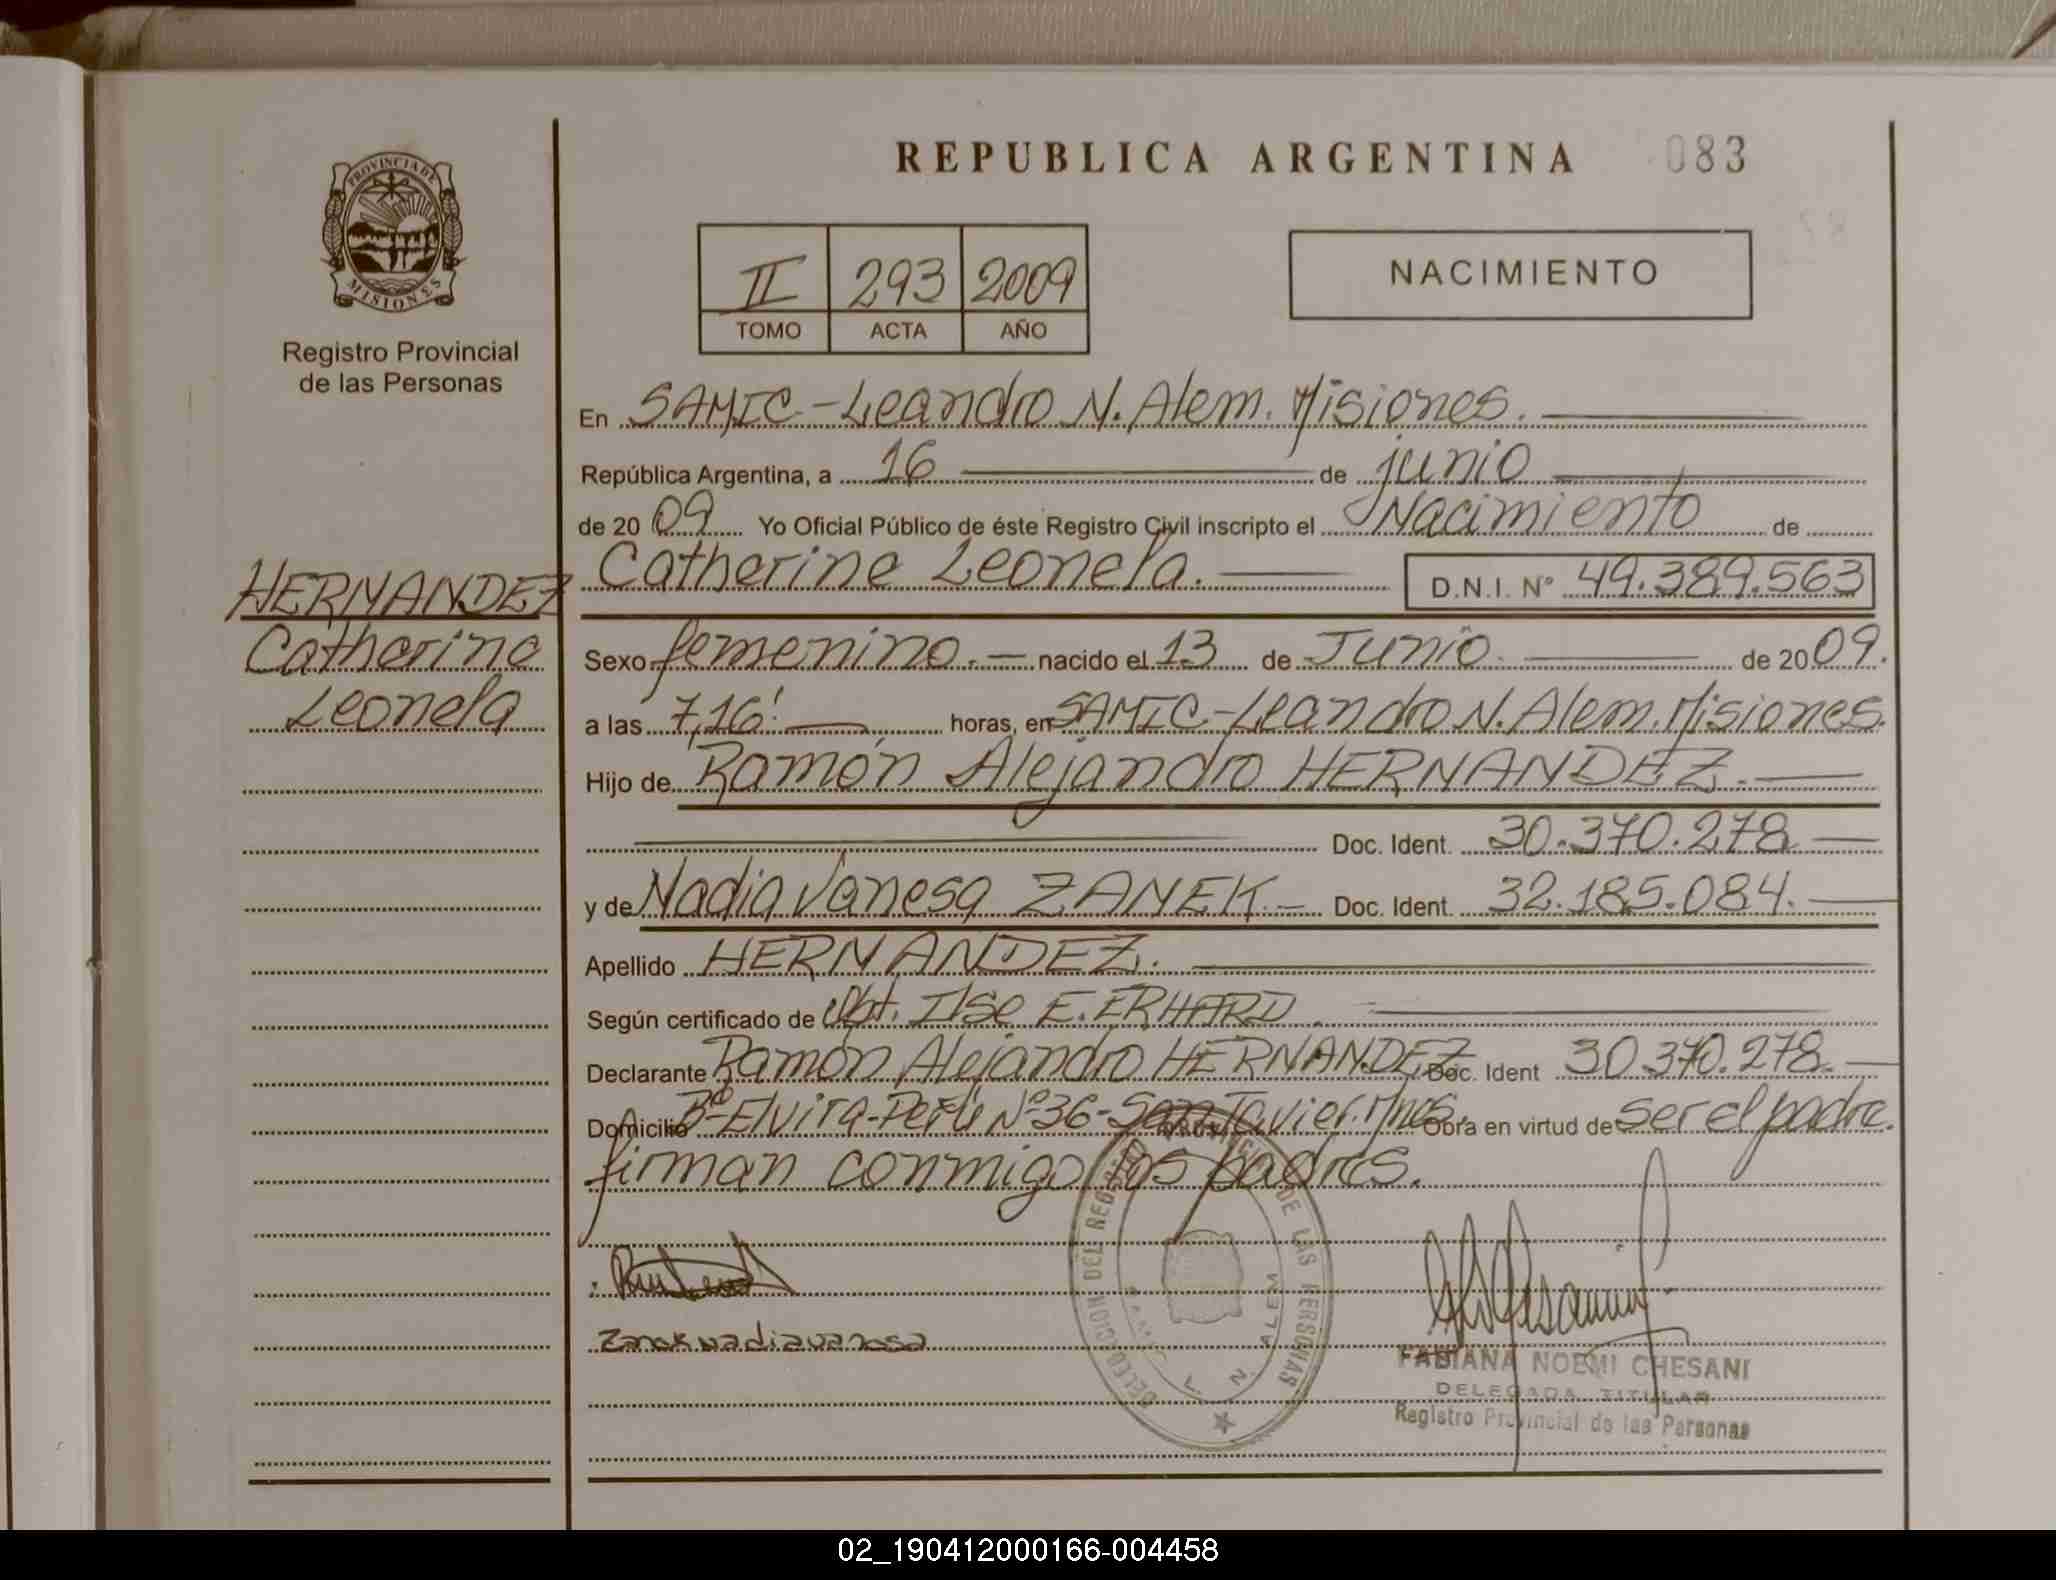 REPUBLICA ARGENTINA 083
PROVINCIA DE
MISIONES
Registro Provincial
de las Personas
II 293 2009
TOMO ACTA AÑO
NACIMIENTO
En SAMIC-Leandro N. Alem. Misiones.
República Argentina, a 16 de junio
de 2009 Yo Oficial Público de éste Registro Civil inscripto el Nacimiento de
Catherine Leonela. D.N.I. N° 49.389.563
HERNANDEZ
Catherine
Leonela
Sexo femenino. nacido el 13 de Junio. de 2009.
a las 7,16' horas, en SAMIC-Leandro N. Alem. Misiones.
Hijo de Ramón Alejandro HERNANDEZ.
Doc. Ident. 30.370.278
y de Nadia Vanesa ZANEK. Doc. Ident. 32.185.084.
Apellido HERNANDEZ.
Según certificado de Obt. Ilse E. ERHARD.
Declarante Ramón Alejandro HERNANDEZ Doc. Ident 30.370.278.
Domicilio B° Elvira-Perú N° 36-San Javier. Mnes. Obra en virtud de ser el padre.
firman conmigo los padres.
Zanek nadia vanesa
DELEGACION DEL REGISTRO PROVINCIAL DE LAS PERSONAS
L. N. ALEM
FABIANA NOEMI CHESANI
DELEGADA TITULAR
Registro Provincial de las Personas
02_190412000166-004458